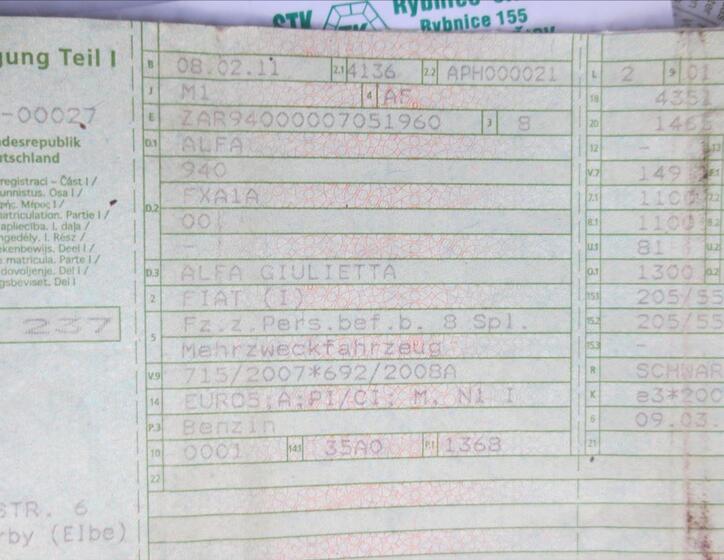 STK
Rybnice 155
gung Teil I
-00027
ndesrepublik
utschland
registraci – Část I /
unnistus. Osa I /
Μέρος I /
matriculation. Partie I /
apliecība. I. daļa /
ngedély. I. Rész /
ekenbewijs. Deel I /
e matricula. Parte I /
dovoljenje. Del I /
gsbeviset. Del I
237
STR. 6
rby (Elbe)
B 08.02.11 2.1 4136 2.2 APH000021 L 2 9 01
J M1 4 AF 18 4351
E ZAR94000007051960 3 8 20 146
D.1 ALFA 12 - 13
940 V.7 149 F.1
D.2 FXA1A 7.1 110 7.2
00 8.1 110
- U.1 81 U.2
D.3 ALFA GIULIETTA O.1 1300 O.2
2 FIAT (I) 15.1 205/55
5 Fz.z.Pers.bef.b. 8 Spl. 15.2 205/55
Mehrzweckfahrzeug 15.3 -
V.9 715/2007*692/2008A R SCHWAR
14 EURO5;A;PI/CI; M, N1 I K e3*200
P.3 Benzin 6 09.03.
10 0001 14.1 35A0 P.1 1368 21
22